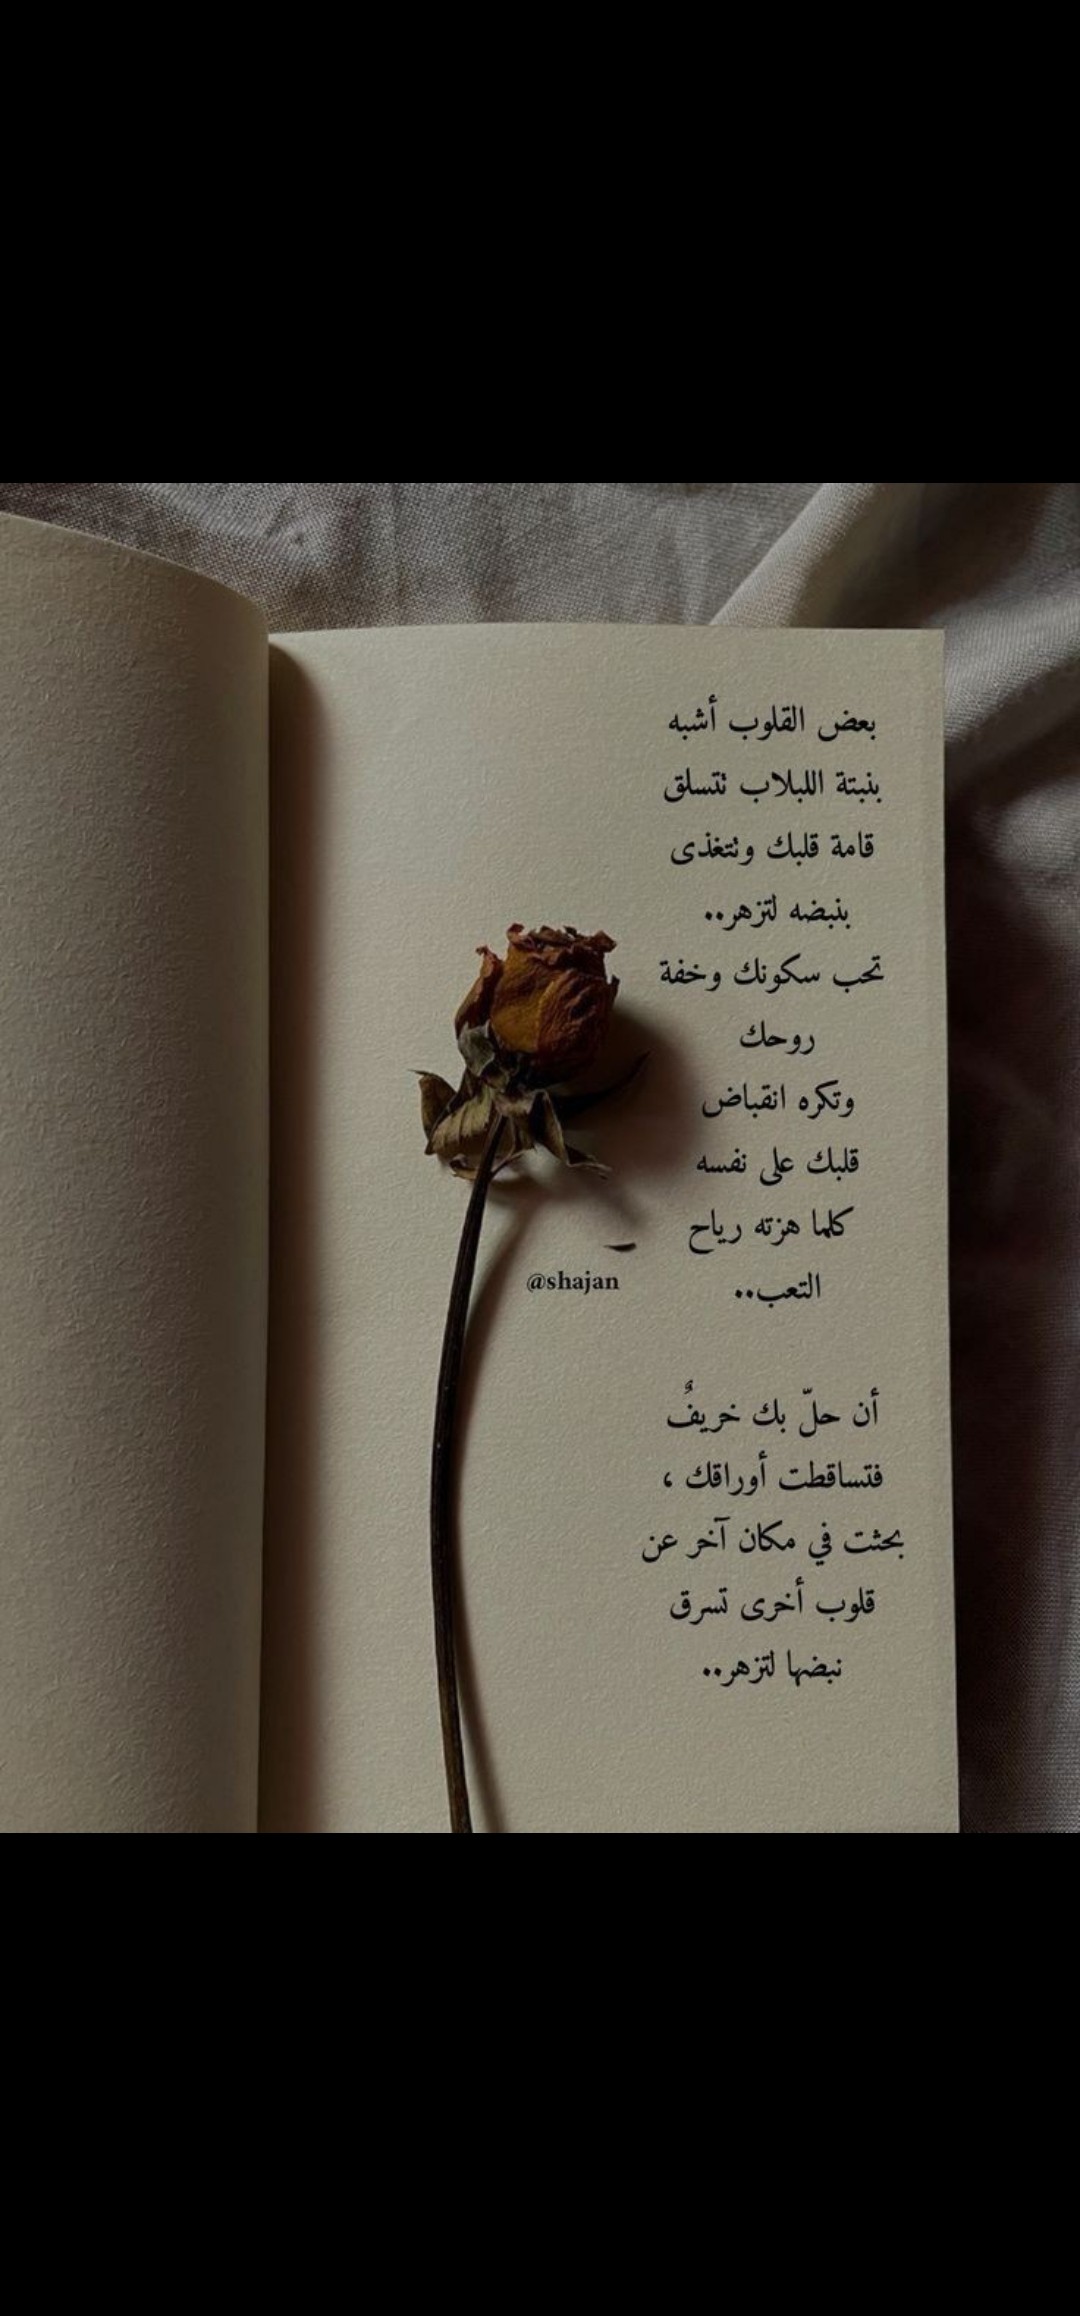 بعض القلوب أشبه
بنبتة اللبلاب تتسلق
قامة قلبك وتتغذى
بنبضه لتزهر..
تحب سكونك وخفة
روحك
وتكره انقباض
قلبك على نفسه
كلما هزته رياح
التعب..
@shajan
أن حلّ بك خريفٌ
فتساقطت أوراقك ،
بحثت في مكان آخر عن
قلوب أخرى تسرق
نبضها لتزهر..